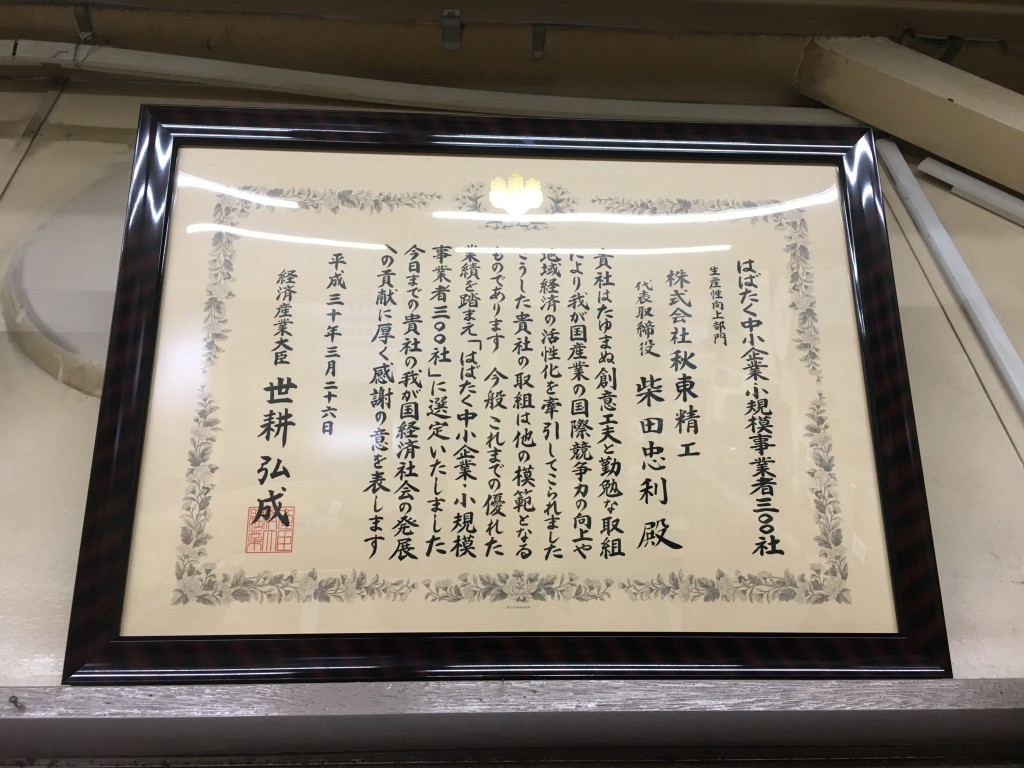 はばたく中小企業・小規模事業者三〇〇社
生産性向上部門
株式会社秋東精工
代表取締役 柴田忠利殿
貴社はたゆまぬ創意工夫と勤勉な取組
により我が国産業の国際競争力の向上や
地域経済の活性化を牽引してこられました
こうした貴社の取組は他の模範となる
ものであります 今般これまでの優れた
業績を踏まえ「はばたく中小企業・小規模
事業者三〇〇社」に選定いたしました
今日までの貴社の我が国経済社会の発展
への貢献に厚く感謝の意を表します
平成三十年三月二十六日
経済産業大臣 世耕弘成